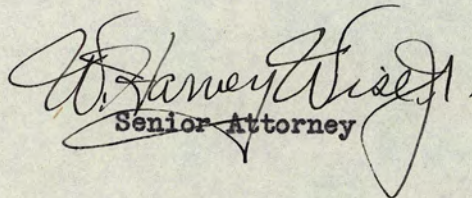 W. Harvey Wise, Jr.
Senior Attorney